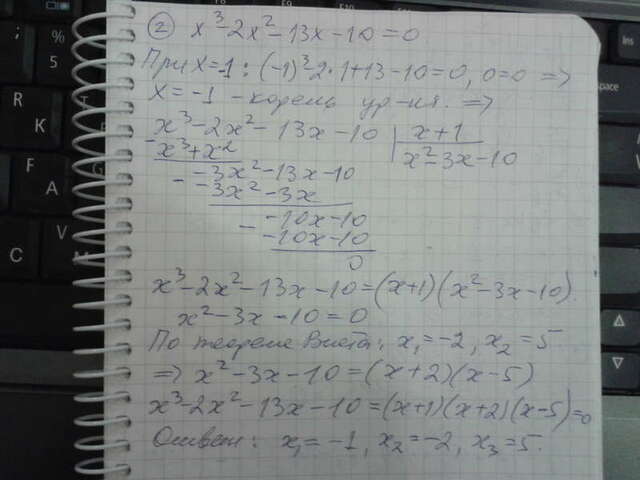 ② x³-2x²-13x-10=0
При x=-1: (-1)³-2·1+13-10=0, 0=0 =>
x=-1 - корень ур-ния. =>
x³-2x²-13x-10 | x+1
- x³+x² x²-3x-10
-3x²-13x-10
- -3x²-3x
-10x-10
- -10x-10
0
x³-2x²-13x-10=(x+1)(x²-3x-10).
x²-3x-10=0
По теореме Виета: x₁=-2, x₂=5
=> x²-3x-10=(x+2)(x-5)
x³-2x²-13x-10=(x+1)(x+2)(x-5)=0
Ответ: x₁=-1, x₂=-2, x₃=5.
;
%
5
R
K
F
A
C
V
M
Ins
Space